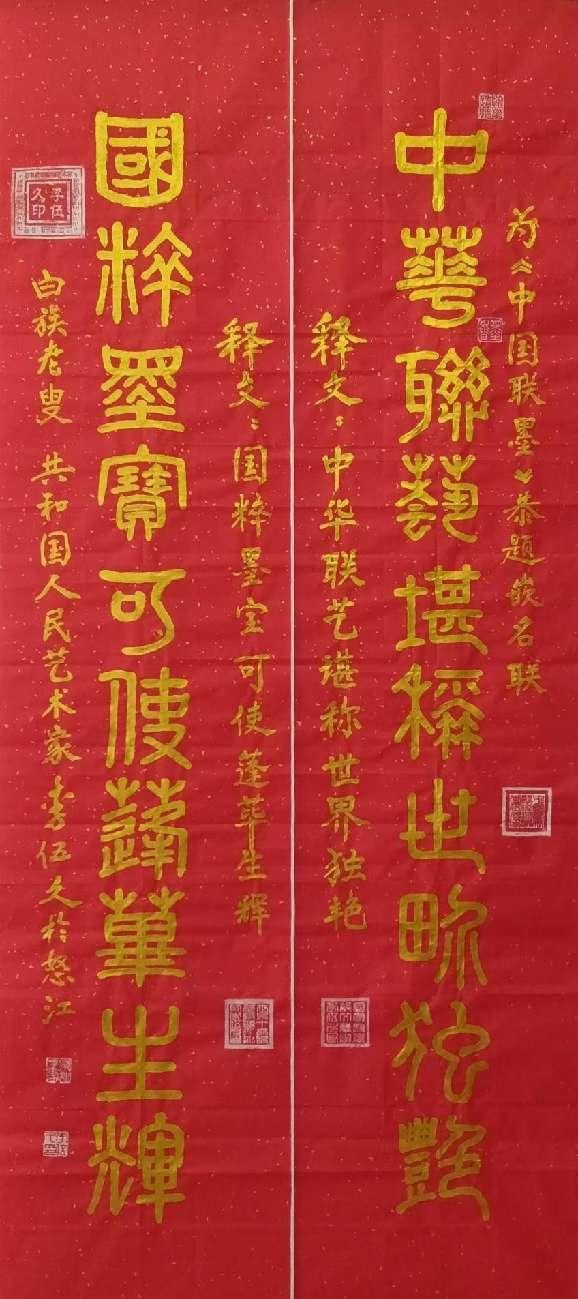 为《中国联墨》恭题嵌名联
中華聯藝堪稱世畍独艷
释文：中华联艺堪称世界独艳
释文：国粹墨宝可使蓬荜生辉
國粹墨寶可使蓬蓽生輝
白族老叟 共和国人民艺术家李伍久於怒江
李伍久印